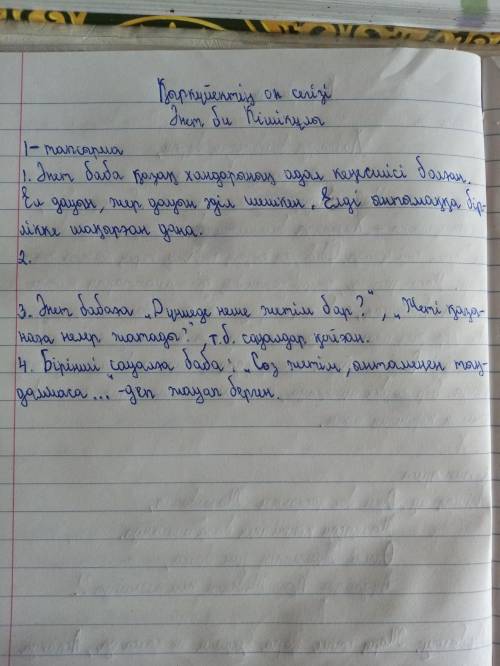 Қыркүйектің он сегізі
Әнет би Кішікұлы
1-тапсырма
1. Әнет баба қазақ хандарының адал кеңесшісі болған.
Ел дауын, жер дауын әділ шешкен. Елді ынтымаққа бір-
лікке шақырған дана.
2.
3. Әнет бабаға „Дүниеде неше жетім бар?", „Жеті қазы-
наға немер жатады?", т.б. сауалдар қойған.
4. Бірінші сауалға баба: „Сөз жетім, ынтамен тың-
далмаса..." -деп жауап берген.